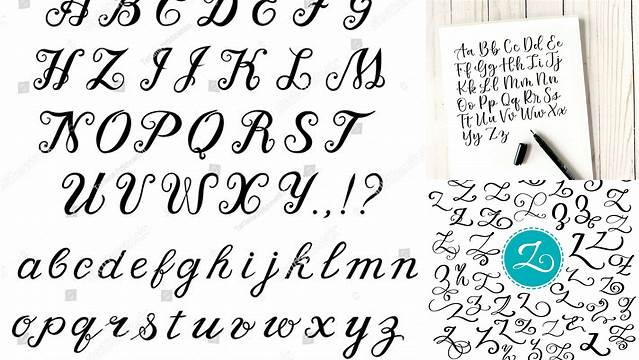 A B C D E F G
H Z I J K L M
N O P Q R S T
U V W X Y.,!?
a b c d e f g h i j k l m n
o p q r s t u v w x y z
Aa Bb Cc Dd Ee
Ff Gg Hh Ii Jj
Kk Ll Mm Nn
Oo Pp Qq Rr Ss
Tt Uu Vv Ww Xx
Yy Zz
Z